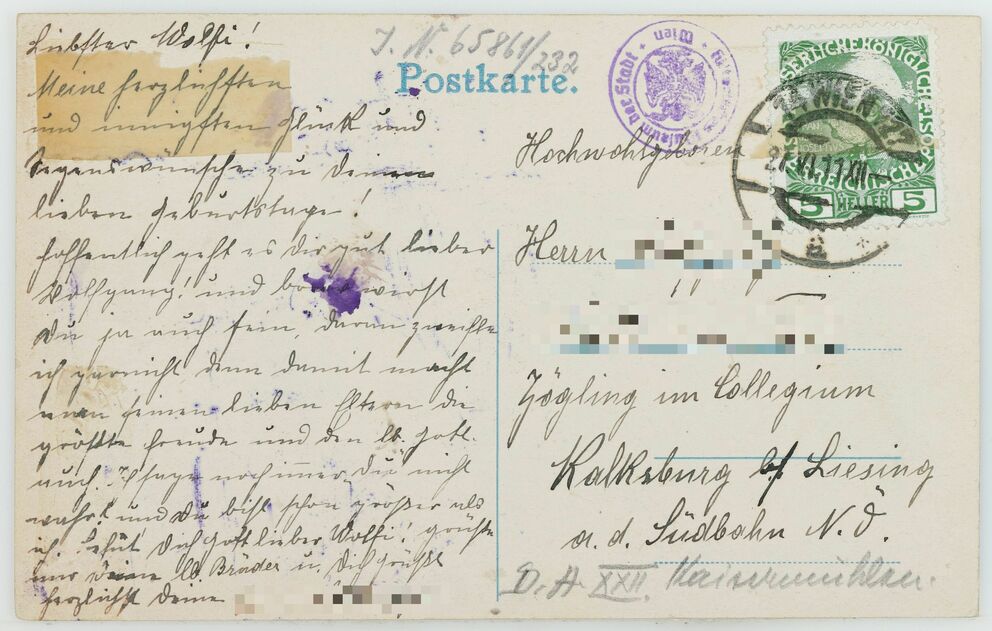 Liebster Wolfi!
Meine herzlichsten
und innigsten Glück und
Segenswünsche zu Deinem
lieben Geburtstage!
Hoffentlich geht es Dir gut lieber
Wolfgang! und brav wirst
Du ja auch sein, daran zweifle
ich garnicht denn damit macht
man seinen lieben Eltern die
größte Freude und den lb. Gott
auch. Ich sage noch immer Du nicht
wahr? und Du bist schon größer als
ich. Behüt Dich Gott lieber Wolfi! grüße
mir Deine lb. Brüder u. Dich grüßt
herzlichst Deine
J. N. 65861/232
Postkarte.
der Stadt Wien
KAISERLICHE KÖNIGLICHE ÖSTERREICHISCHE
5 HELLER 5
WIEN
VI. 11 XII
Hochwohlgeboren
Herrn
Zögling im Collegium
Kalksburg b/ Liesing
a. d. Südbahn N. Ö.
D. A. XXII. Kaisermühlen.